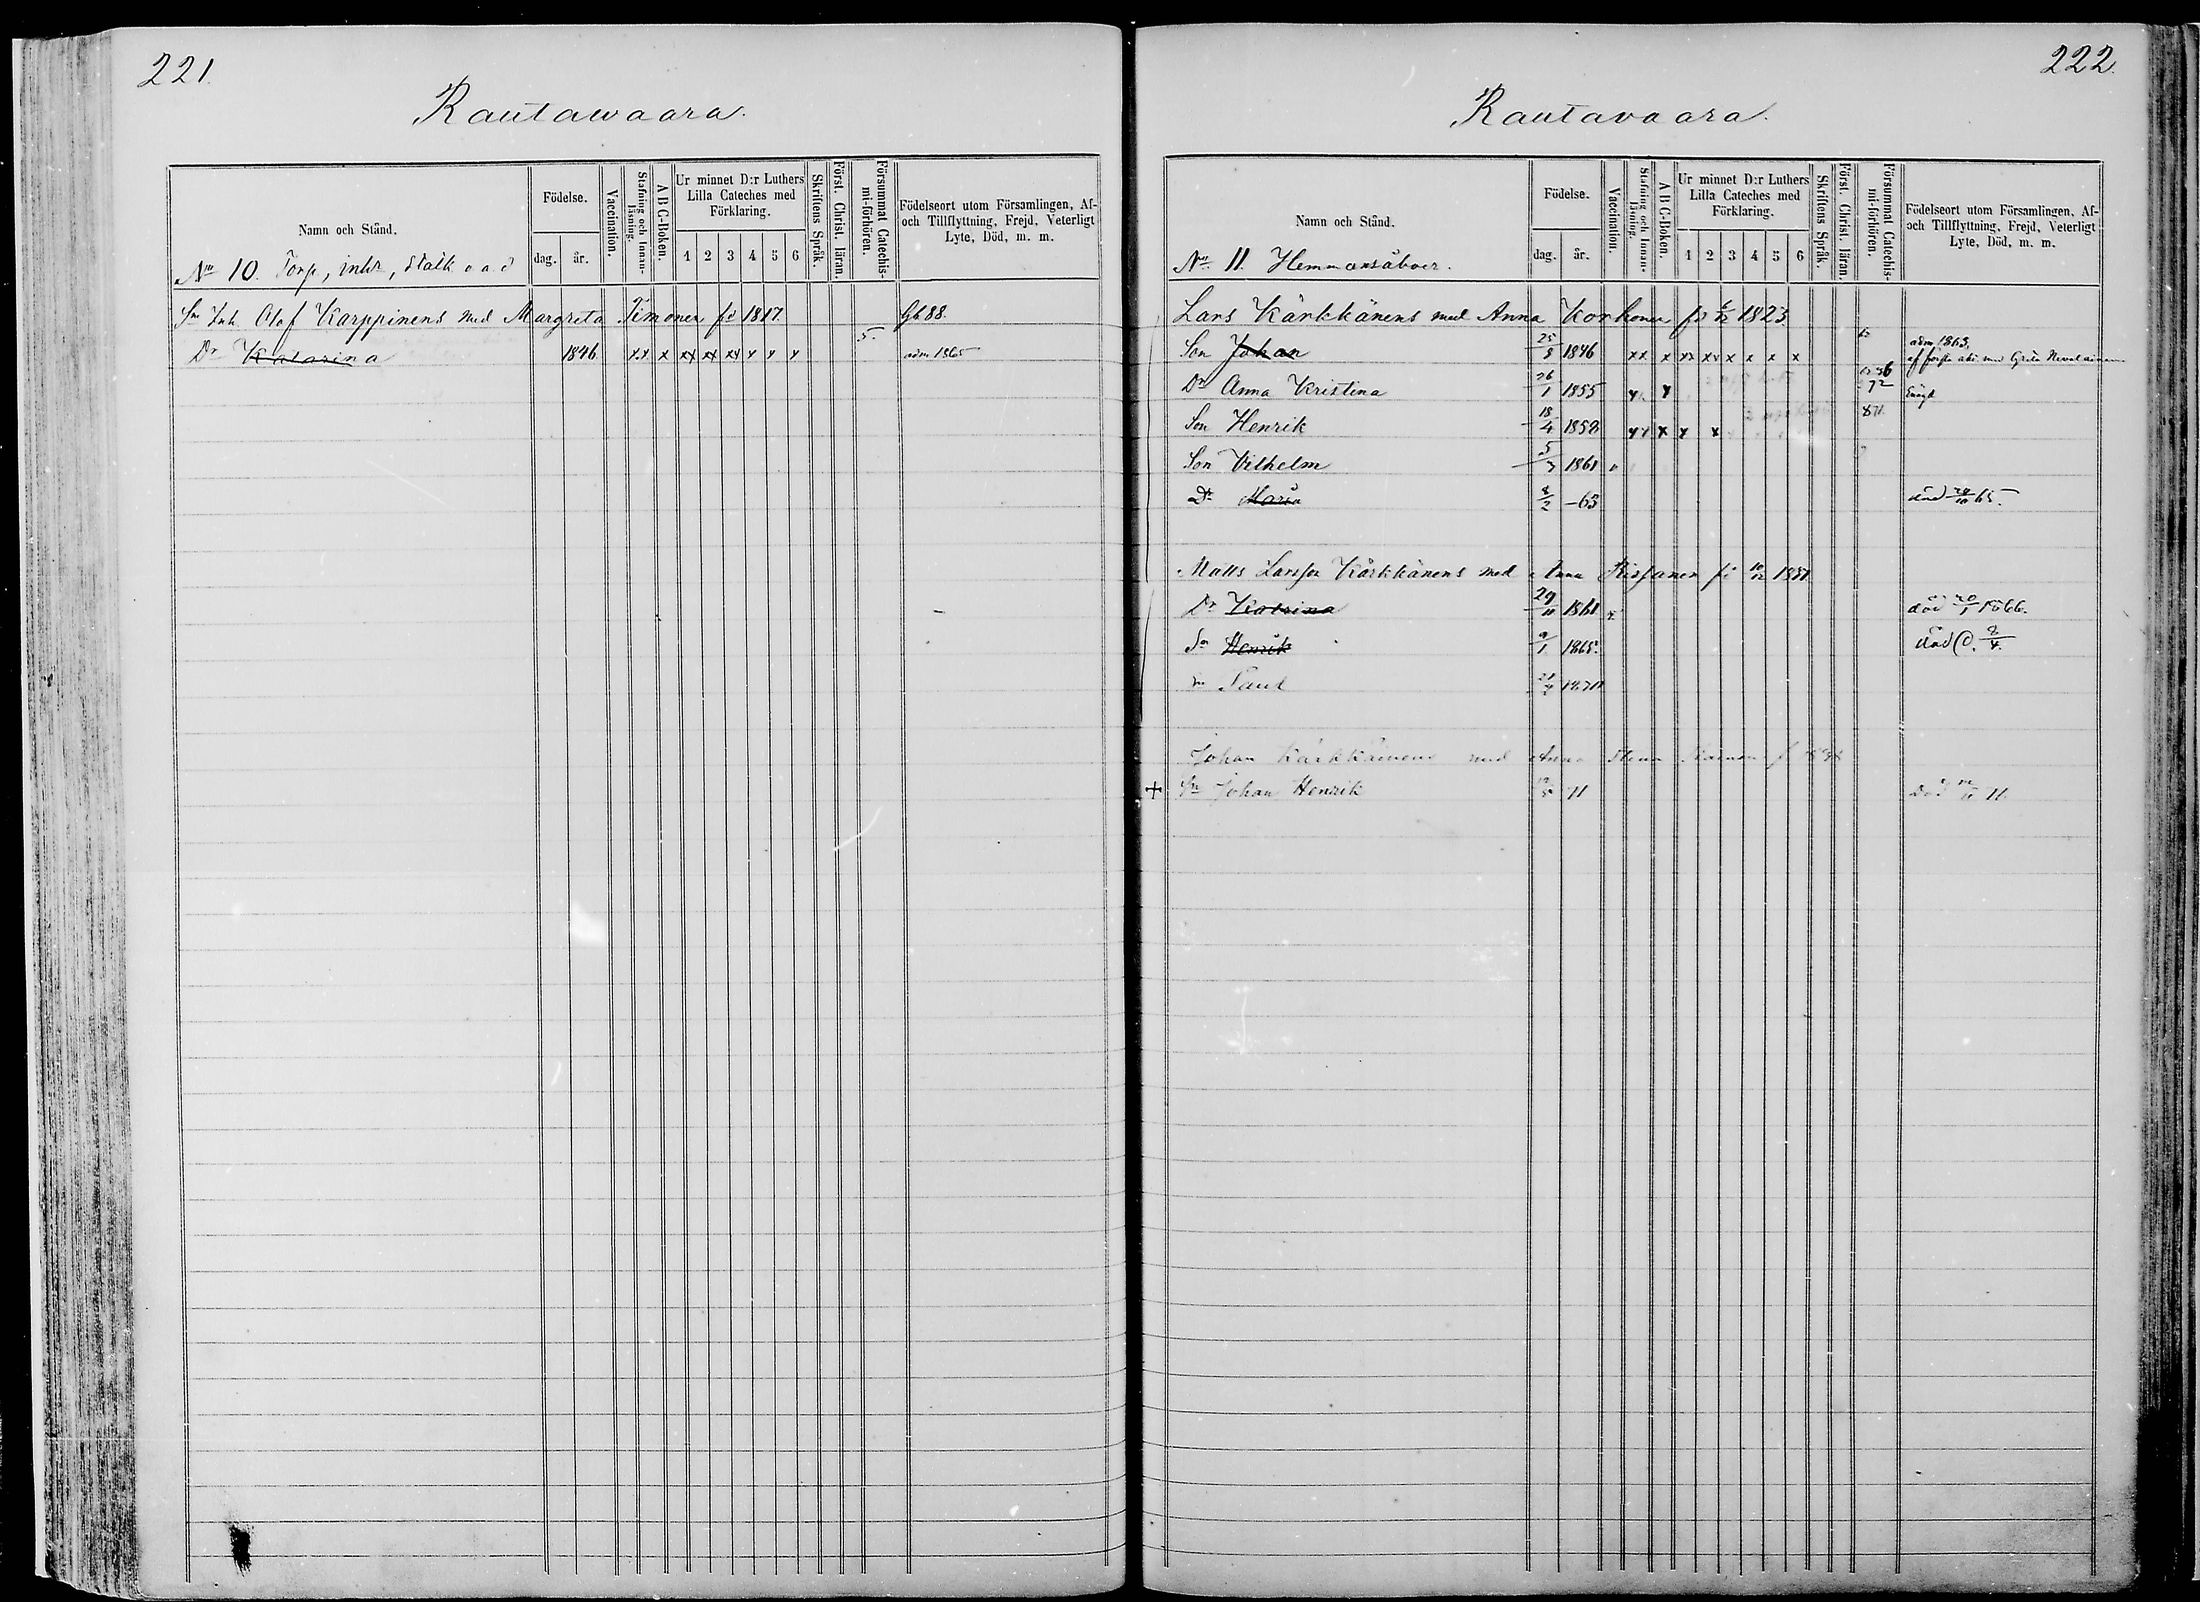 221.
Rautawaara.
Namn och Stånd.
Födelse.
dag.
år.
Vaccination.
Stafning och Innan-läsning.
A B C-Boken.
Ur minnet D:r Luthers Lilla Cateches med Förklaring.
1 2 3 4 5 6
Skriftens Språk.
Först. Christ. läran.
Försummat Catechis-mi-förhören.
Födelseort utom Församlingen, Af- och Tillflyttning, Frejd, Veterligt Lyte, Död, m. m.
No 10. Torp, inhr,
Sn Inh. Olof Karppinens med Margreta Timonen fd 1817. Gh 88.
5.
Dr Katarina 1846 xx x xx xx xx x x x adm 1865
222.
Rautavaara.
Namn och Stånd.
Födelse.
dag.
år.
Vaccination.
Stafning och Innan-läsning.
A B C-Boken.
Ur minnet D:r Luthers Lilla Cateches med Förklaring.
1 2 3 4 5 6
Skriftens Språk.
Först. Christ. läran.
Försummat Catechis-mi-förhören.
Födelseort utom Församlingen, Af- och Tillflyttning, Frejd, Veterligt Lyte, Död, m. m.
No 11. Hemmansåboer.
Lars Kärkkänens med Anna Korhonen fd 1823
Son Johan 25/8 1846 xx x xx xx x x x x adm 1863.
Dr Anna Kristina 26/1 1855 x x 72
Son Henrik 18/4 1858 xx x x x 871
Son Vilhelm 5/3 1861
Dr Maria 8/2 -63 död 65.
Matts Larsson Kärkkänens med Anna fd 10/12
Dr Katrina 29/11 1861 x död 20/1 1866.
Sn Henrik 9/1 1865. död 8/4.
Paul
Johan Kärkkäinens med Anna
+ Sn Johan Henrik 71 Död